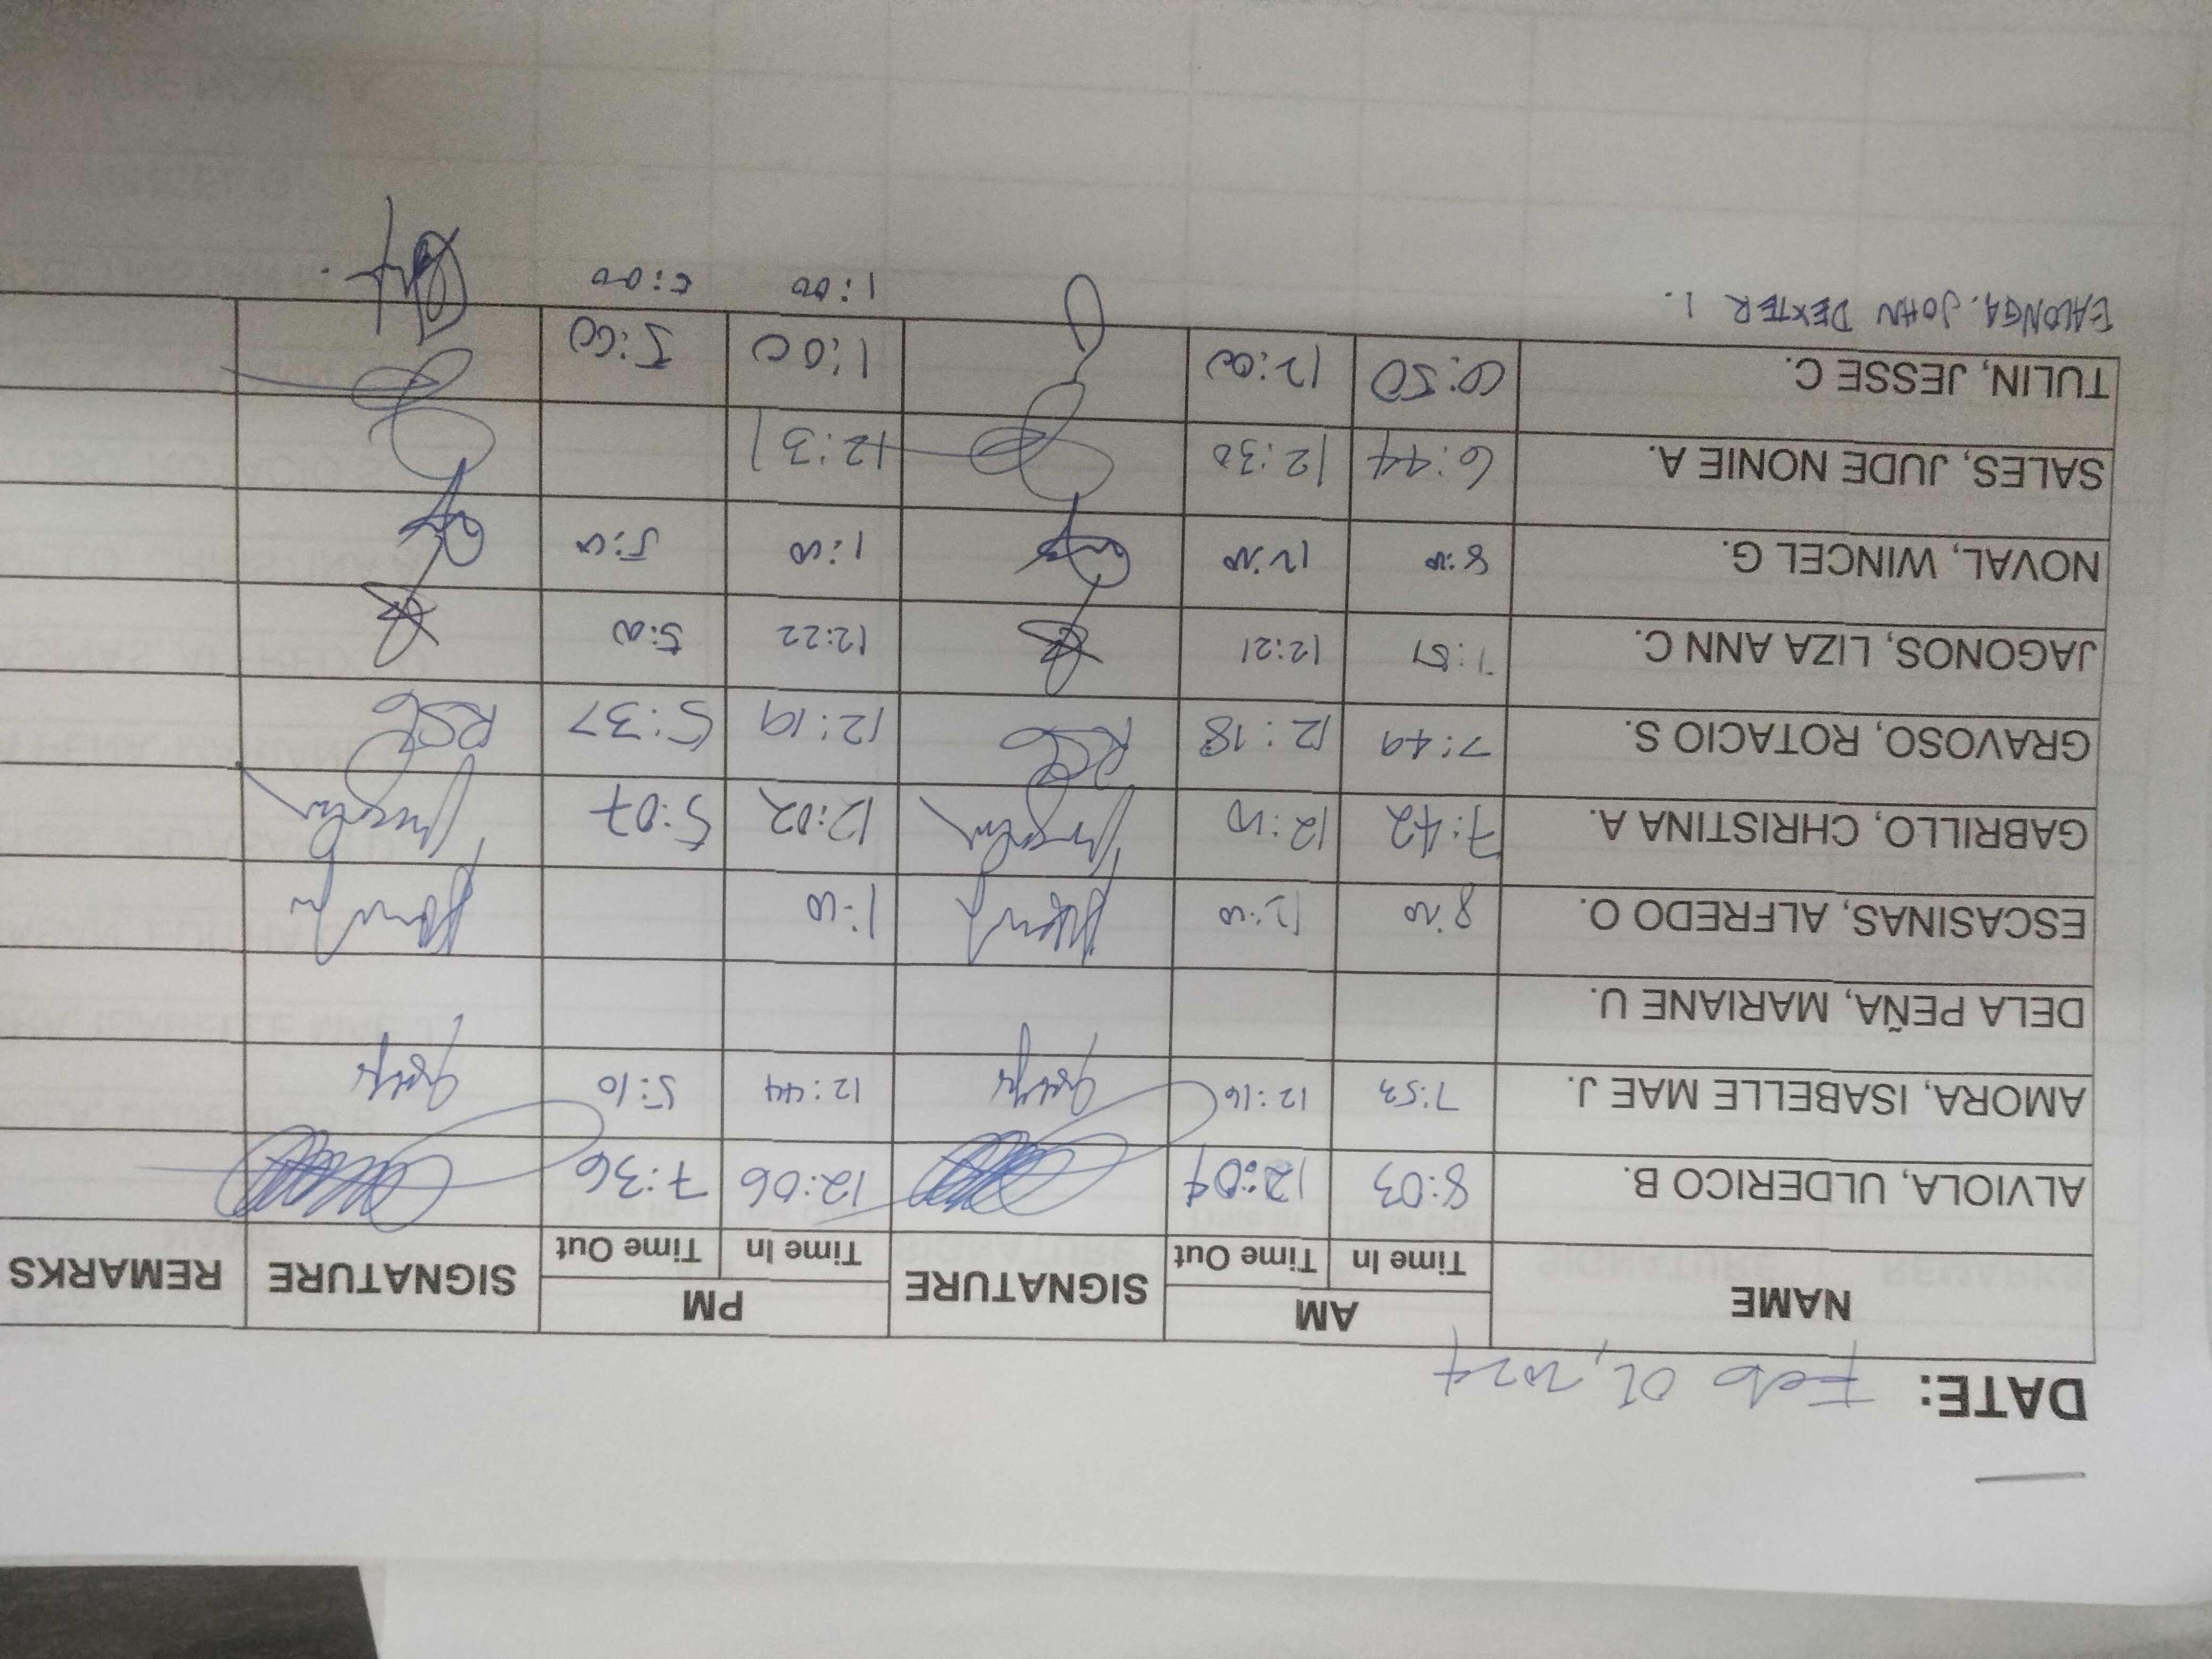 DATE: Feb 01, 2024
NAME AM SIGNATURE PM SIGNATURE REMARKS
Time In Time Out Time In Time Out
ALVIOLA, ULDERICO B. 8:03 12:04 12:06 7:36
AMORA, ISABELLE MAE J. 7:53 12:16 12:44 5:10
DELA PEÑA, MARIANE U.
ESCASINAS, ALFREDO O. 8:00 12:00 1:00
GABRILLO, CHRISTINA A. 7:42 12:00 12:02 5:07
GRAVOSO, ROTACIO S. 7:49 12:18 RSG 12:19 5:37 RSG
JAGONOS, LIZA ANN C. 7:51 12:21 12:22 5:00
NOVAL, WINCEL G. 8:00 12:00 1:00 5:00
SALES, JUDE NONIE A. 6:44 12:30 12:31
TULIN, JESSE C. 6:50 12:00 1:00 5:00
JOHN DEXTER 1:00 5:00